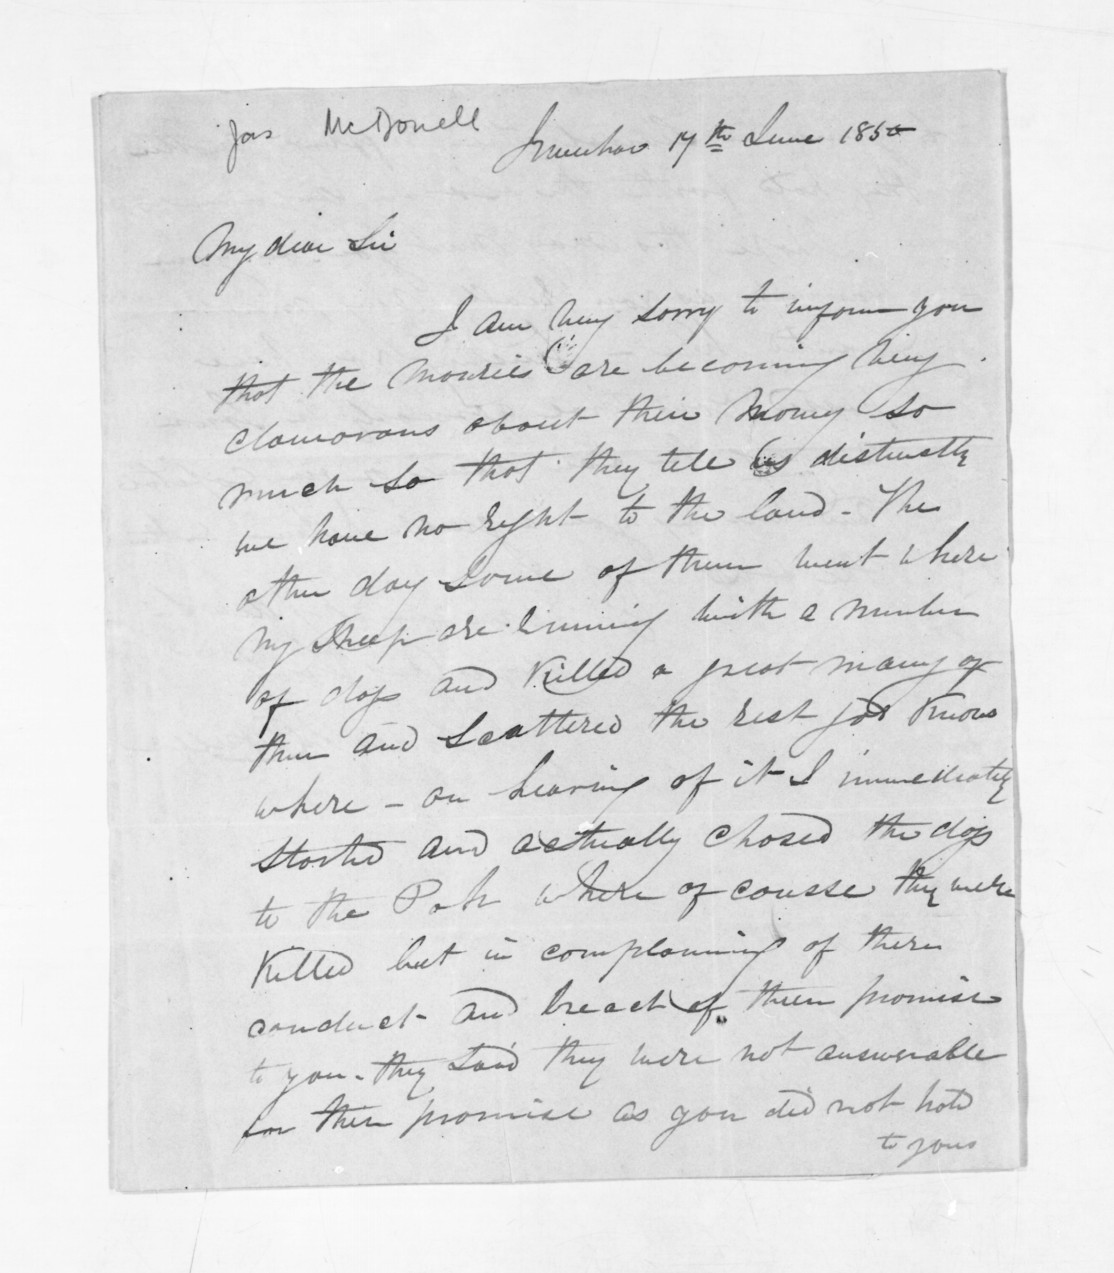 Jas McDonell
Inverhoe 17th June 1850
My dear Sir
I am very sorry to inform you
that the Mouries are becoming very
clamorous about their Money so
much so that they tell us distinctly
we have no right to the land - The
other day some of them went where
my sheep are running with a number
of dogs and Killed a great many of
them and scattered the rest god knows
where - on hearing of it I immediately
started and actually chased the dogs
to the Pah where of course they were
Killed but in complaining of there
conduct and breach of their promise
to you - they said they were not answerable
for their promise as you did not hold
to yours